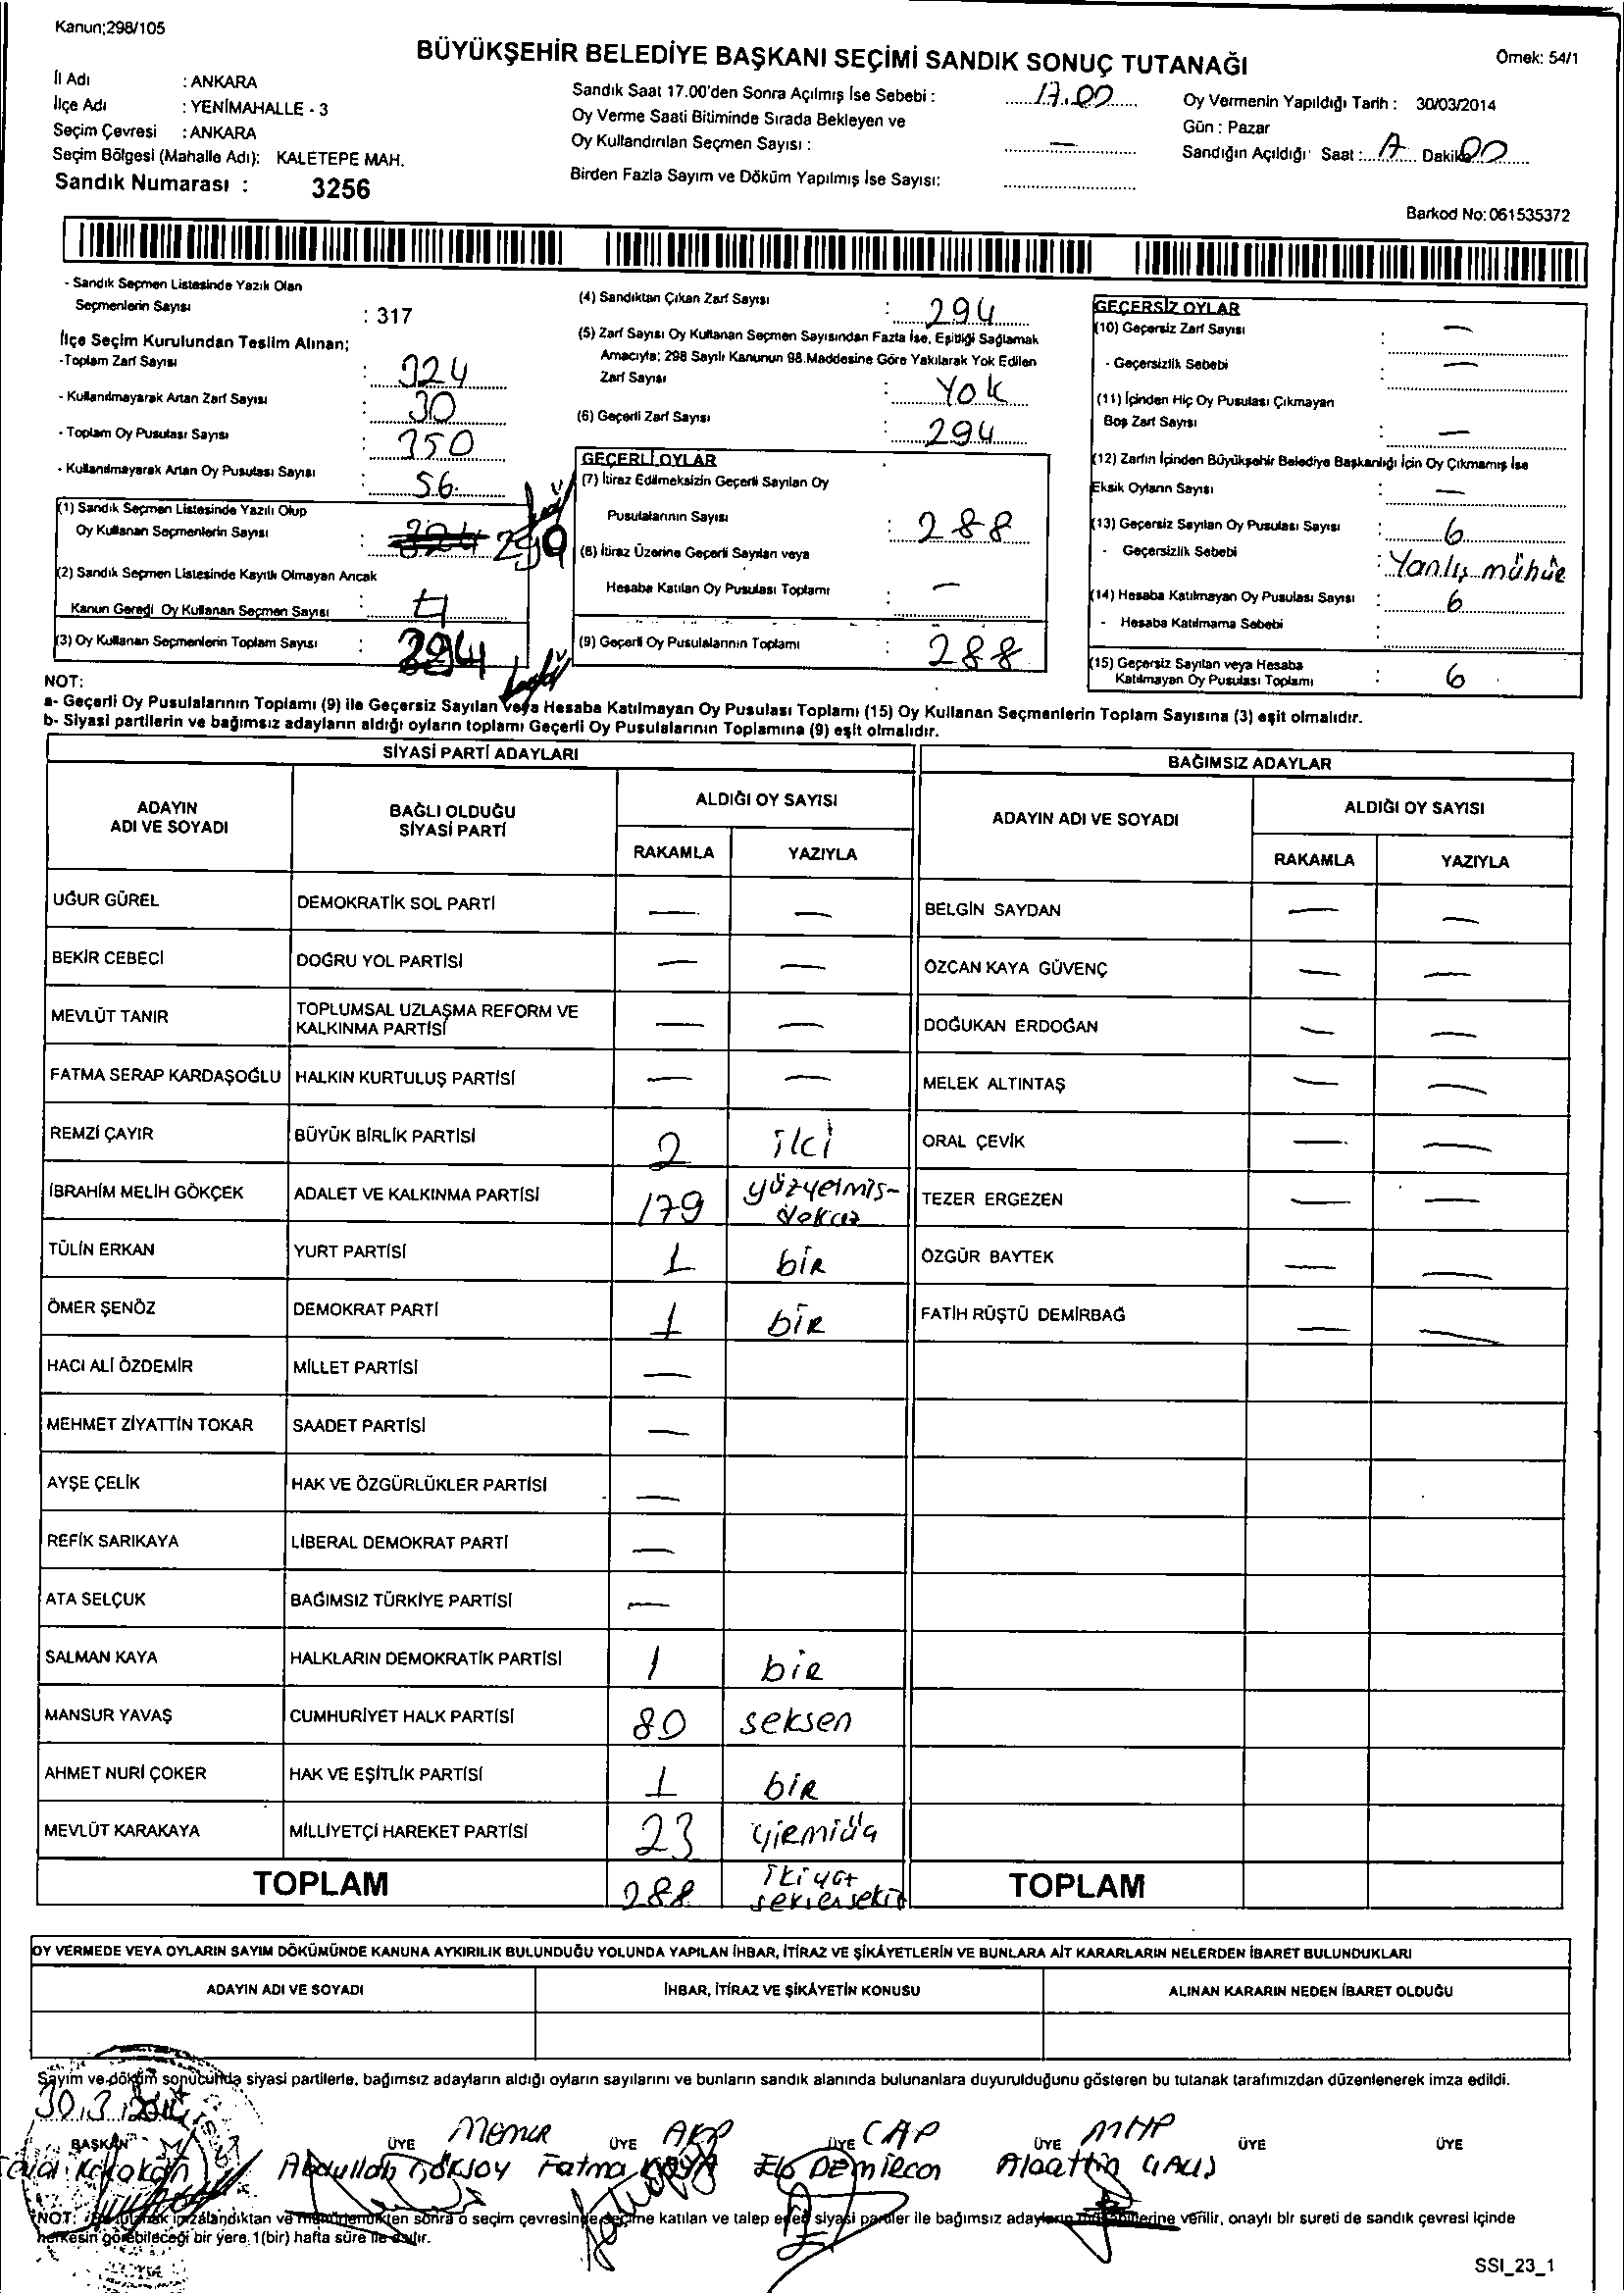 Kanun;298/105
BÜYÜKŞEHİR BELEDİYE BAŞKANI SEÇİMİ SANDIK SONUÇ TUTANAĞI
Örnek: 54/1
İl Adı : ANKARA
İlçe Adı : YENİMAHALLE - 3
Seçim Çevresi : ANKARA
Seçim Bölgesi (Mahalle Adı): KALETEPE MAH.
Sandık Numarası : 3256
Sandık Saat 17.00'den Sonra Açılmış İse Sebebi : 17.00
Oy Verme Saati Bitiminde Sırada Bekleyen ve
Oy Kullandırılan Seçmen Sayısı : —
Birden Fazla Sayım ve Döküm Yapılmış İse Sayısı:
Oy Vermenin Yapıldığı Tarih : 30/03/2014
Gün : Pazar
Sandığın Açıldığı Saat : 17 Dakika 00
Barkod No: 061535372
- Sandık Seçmen Listesinde Yazılı Olan
Seçmenlerin Sayısı : 317
İlçe Seçim Kurulundan Teslim Alınan;
-Toplam Zarf Sayısı : 324
- Kullanılmayarak Artan Zarf Sayısı : 30
- Toplam Oy Pusulası Sayısı : 350
- Kullanılmayarak Artan Oy Pusulası Sayısı : 56
(1) Sandık Seçmen Listesinde Yazılı Olup
Oy Kullanan Seçmenlerin Sayısı : 324 290
(2) Sandık Seçmen Listesinde Kayıtlı Olmayan Ancak
Kanun Gereği Oy Kullanan Seçmen Sayısı : 4
(3) Oy Kullanan Seçmenlerin Toplam Sayısı : 294
(4) Sandıktan Çıkan Zarf Sayısı : 294
(5) Zarf Sayısı Oy Kullanan Seçmen Sayısından Fazla İse, Eşitliği Sağlamak
Amacıyla; 298 Sayılı Kanunun 98.Maddesine Göre Yakılarak Yok Edilen
Zarf Sayısı : Yok
(6) Geçerli Zarf Sayısı : 294
GEÇERLİ OYLAR
(7) İtiraz Edilmeksizin Geçerli Sayılan Oy
Pusulalarının Sayısı : 288
(8) İtiraz Üzerine Geçerli Sayılan veya
Hesaba Katılan Oy Pusulası Toplamı : —
(9) Geçerli Oy Pusulalarının Toplamı : 288
GEÇERSİZ OYLAR
(10) Geçersiz Zarf Sayısı : —
- Geçersizlik Sebebi : —
(11) İçinden Hiç Oy Pusulası Çıkmayan
Boş Zarf Sayısı : —
(12) Zarfın İçinden Büyükşehir Belediye Başkanlığı İçin Oy Çıkmamış İse
Eksik Oyların Sayısı : —
(13) Geçersiz Sayılan Oy Pusulası Sayısı : 6
- Geçersizlik Sebebi : Yanlış mühür
(14) Hesaba Katılmayan Oy Pusulası Sayısı : 6
- Hesaba Katılmama Sebebi :
(15) Geçersiz Sayılan veya Hesaba
Katılmayan Oy Pusulası Toplamı : 6
NOT:
a- Geçerli Oy Pusulalarının Toplamı (9) ile Geçersiz Sayılan veya Hesaba Katılmayan Oy Pusulası Toplamı (15) Oy Kullanan Seçmenlerin Toplam Sayısına (3) eşit olmalıdır.
b- Siyasi partilerin ve bağımsız adayların aldığı oyların toplamı Geçerli Oy Pusulalarının Toplamına (9) eşit olmalıdır.
SİYASİ PARTİ ADAYLARI
BAĞIMSIZ ADAYLAR
ADAYIN ADI VE SOYADI
BAĞLI OLDUĞU SİYASİ PARTİ
ALDIĞI OY SAYISI
RAKAMLA YAZIYLA
ADAYIN ADI VE SOYADI
ALDIĞI OY SAYISI
RAKAMLA YAZIYLA
UĞUR GÜREL DEMOKRATİK SOL PARTİ — — BELGİN SAYDAN — —
BEKİR CEBECİ DOĞRU YOL PARTİSİ — — ÖZCAN KAYA GÜVENÇ — —
MEVLÜT TANIR TOPLUMSAL UZLAŞMA REFORM VE KALKINMA PARTİSİ — — DOĞUKAN ERDOĞAN — —
FATMA SERAP KARDAŞOĞLU HALKIN KURTULUŞ PARTİSİ — — MELEK ALTINTAŞ — —
REMZİ ÇAYIR BÜYÜK BİRLİK PARTİSİ 2 iki ORAL ÇEVİK — —
İBRAHİM MELİH GÖKÇEK ADALET VE KALKINMA PARTİSİ 179 yüzyetmiş-dokuz TEZER ERGEZEN — —
TÜLİN ERKAN YURT PARTİSİ 1 bir ÖZGÜR BAYTEK — —
ÖMER ŞENÖZ DEMOKRAT PARTİ 1 bir FATİH RÜŞTÜ DEMİRBAĞ — —
HACI ALİ ÖZDEMİR MİLLET PARTİSİ —
MEHMET ZİYATTİN TOKAR SAADET PARTİSİ —
AYŞE ÇELİK HAK VE ÖZGÜRLÜKLER PARTİSİ —
REFİK SARIKAYA LİBERAL DEMOKRAT PARTİ —
ATA SELÇUK BAĞIMSIZ TÜRKİYE PARTİSİ —
SALMAN KAYA HALKLARIN DEMOKRATİK PARTİSİ 1 bir
MANSUR YAVAŞ CUMHURİYET HALK PARTİSİ 80 seksen
AHMET NURİ ÇOKER HAK VE EŞİTLİK PARTİSİ 1 bir
MEVLÜT KARAKAYA MİLLİYETÇİ HAREKET PARTİSİ 23 yirmiüç
TOPLAM 288 ikiyüz seksensekiz TOPLAM
OY VERMEDE VEYA OYLARIN SAYIM DÖKÜMÜNDE KANUNA AYKIRILIK BULUNDUĞU YOLUNDA YAPILAN İHBAR, İTİRAZ VE ŞİKÂYETLERİN VE BUNLARA AİT KARARLARIN NELERDEN İBARET BULUNDUKLARI
ADAYIN ADI VE SOYADI İHBAR, İTİRAZ VE ŞİKÂYETİN KONUSU ALINAN KARARIN NEDEN İBARET OLDUĞU
Sayım ve döküm sonucunda siyasi partilerle, bağımsız adayların aldığı oyların sayılarını ve bunların sandık alanında bulunanlara duyurulduğunu gösteren bu tutanak tarafımızdan düzenlenerek imza edildi.
30.3.2014
BAŞKAN ÜYE Memur ÜYE AKP ÜYE CHP ÜYE MHP ÜYE ÜYE
Abdullah Fatma Elif DEMİRCAN Alaattin
NOT: imzalandıktan ve mühürlendikten sonra o seçim çevresinde seçime katılan ve talep eden siyasi partiler ile bağımsız adayların verilir, onaylı bir sureti de sandık çevresi içinde
herkesin görebileceği bir yere 1(bir) hafta süre ile asılır.
SSI_23_1